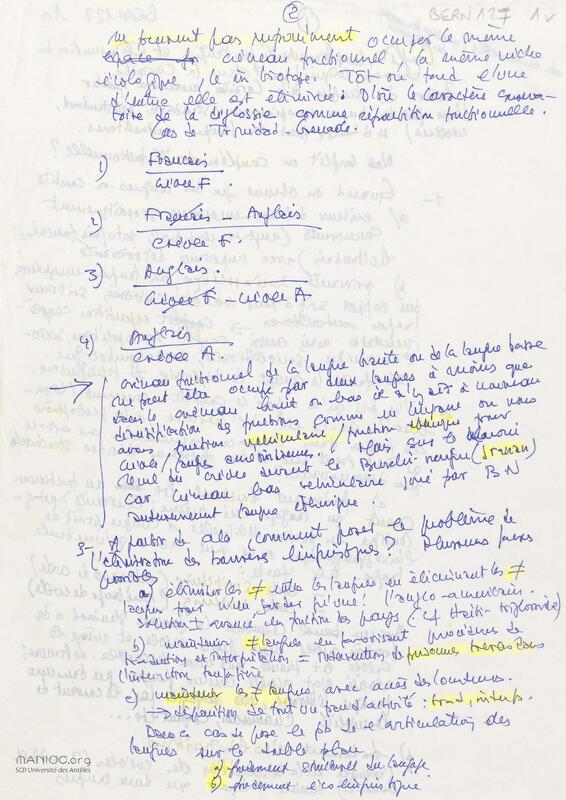 ②
BERN 127 1v
ne peuvent pas impunément occuper le même
créneau fonctionnel, la même niche
écologique, le même biotope. Tôt ou tard l'une
d'entre elle est éliminée. D'où le caractère conserva-
toire de la diglossie comme répartition fonctionnelle.
Cas de Trinidad - Grenade.
1) Français
créole F.
2) Français - Anglais
créole F.
3) Anglais.
créole F - créole A
4) Anglais
créole A.
→ créneau fonctionnel de la langue haute ou de la langue basse
ne peut être occupé par deux langues à moins que
dans le créneau haut ou bas il n'y ait à nouveau
diversification de fonctions comme en Guyane où nous
avons fonction véhiculaire / fonction ethnique pour
créole / langues amérindiennes. Mais sur le Maroni
recul du créole devant le Bushi-nengue (Sranan)
car créneau bas véhiculaire joué par B.N
antérieurement langue ethnique.
3- A partir de cela comment poser le problème de
l'élimination des barrières linguistiques? Plusieurs
possibles
a) éliminer les ≠ entre les langues en éliminant les ≠
langues pour n'en garder qu'une: l'anglo-américain.
Solution ± avancée en fonction des pays (cf Haïti - triglossie)
b) maintenir ≠ langues en favorisant procédures de
traduction et interprétation = intervention de personnes
l'interaction
c) maintenir les ≠ langues avec accès des locuteurs
→ disparition de tout un pan d'activité: trad, interp.
Dans ce cas se pose le pb de l'articulation des
langues sur le double plan
a) purement structurel du langage
b) purement éco-linguistique.
MANIOC.org
SCD Université des Antilles